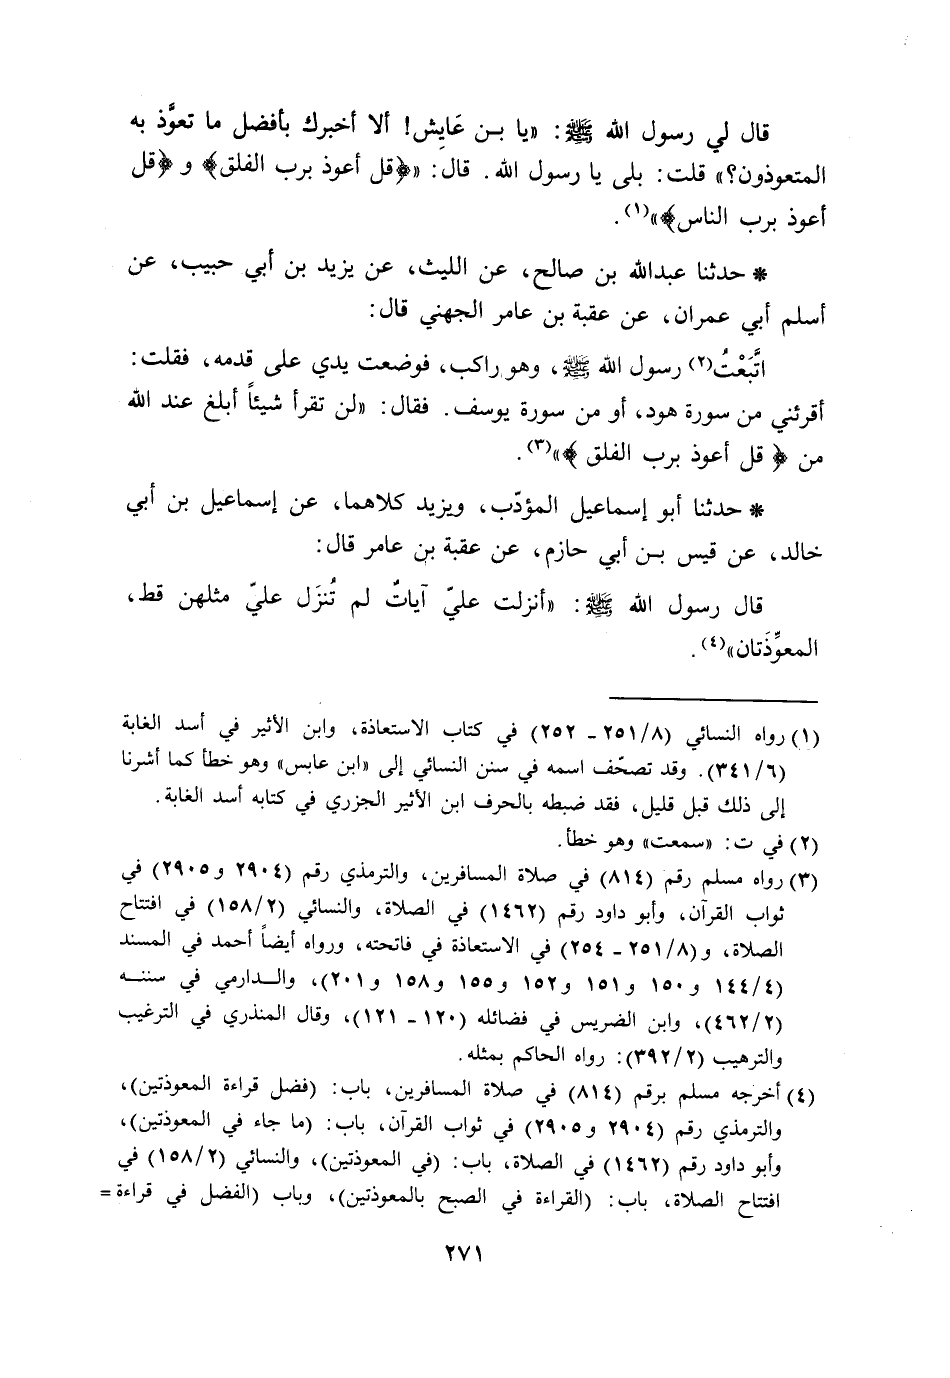 قال لي رسول الله ﷺ: «يا بن عَايِش! ألا أخبرك بأفضل ما تعوَّذ به
المتعوذون؟» قلت: بلى يا رسول الله. قال: «﴿قل أعوذ برب الفلق﴾ و ﴿قل
أعوذ برب الناس﴾»(١).
* حدثنا عبدالله بن صالح، عن الليث، عن يزيد بن أبي حبيب، عن
أسلم أبي عمران، عن عقبة بن عامر الجهني قال:
اتَّبَعْتُ(٢) رسول الله ﷺ، وهو راكب، فوضعت يدي على قدمه، فقلت:
أقرئني من سورة هود، أو من سورة يوسف. فقال: «لن تقرأ شيئاً أبلغ عند الله
من ﴿ قل أعوذ برب الفلق ﴾»(٣).
* حدثنا أبو إسماعيل المؤدّب، ويزيد كلاهما، عن إسماعيل بن أبي
خالد، عن قيس بن أبي حازم، عن عقبة بن عامر قال:
قال رسول الله ﷺ: «أنزلت عليّ آياتٌ لم تُنزَل عليّ مثلهن قط،
المعوِّذَتان»(٤).
(١) رواه النسائي (٨/٢٥١ ـ ٢٥٢) في كتاب الاستعاذة، وابن الأثير في أسد الغابة
(٦/٣٤١). وقد تصحّف اسمه في سنن النسائي إلى «ابن عابس» وهو خطأ كما أشرنا
إلى ذلك قبل قليل، فقد ضبطه بالحرف ابن الأثير الجزري في كتابه أسد الغابة.
(٢) في ت: «سمعت» وهو خطأ.
(٣) رواه مسلم رقم (٨١٤) في صلاة المسافرين، والترمذي رقم (٢٩٠٤ و٢٩٠٥) في
ثواب القرآن، وأبو داود رقم (١٤٦٢) في الصلاة، والنسائي (٢/١٥٨) في افتتاح
الصلاة، و(٨/٢٥١ ـ ٢٥٤) في الاستعاذة في فاتحته، ورواه أيضاً أحمد في المسند
(٤/١٤٤ و١٥٠ و١٥١ و١٥٢ و١٥٥ و١٥٨ و٢٠١)، والدارمي في سننه
(٢/٤٦٢)، وابن الضريس في فضائله (١٢٠ ـ ١٢١)، وقال المنذري في الترغيب
والترهيب (٢/٣٩٢): رواه الحاكم بمثله.
(٤) أخرجه مسلم برقم (٨١٤) في صلاة المسافرين، باب: (فضل قراءة المعوذتين)،
والترمذي رقم (٢٩٠٤ و٢٩٠٥) في ثواب القرآن، باب: (ما جاء في المعوذتين)،
وأبو داود رقم (١٤٦٢) في الصلاة، باب: (في المعوذتين)، والنسائي (٢/١٥٨) في
افتتاح الصلاة، باب: (القراءة في الصبح بالمعوذتين)، وباب (الفضل في قراءة =
٢٧١